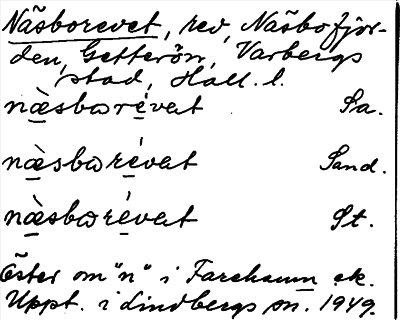 Näsborevet, rev, Näsbofjor-
den, Getterön, Varbergs
stad, Hall. l.
næ̀sbωrévət Sa.
næ̀sbωrévət Sand.
næ̀sbωrévət St.
Öster om "n" i Farehamn ek.
Uppt. i Lindbergs sn. 1949.